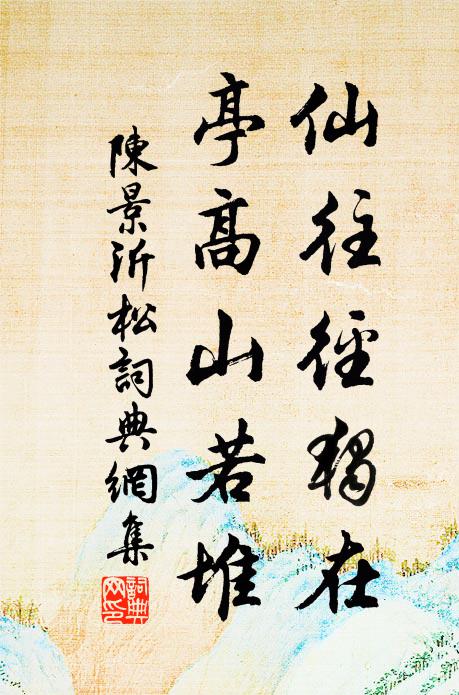 仙往徑獨在
亭高山若堆
陳景沂松詞典網集
詞典網印